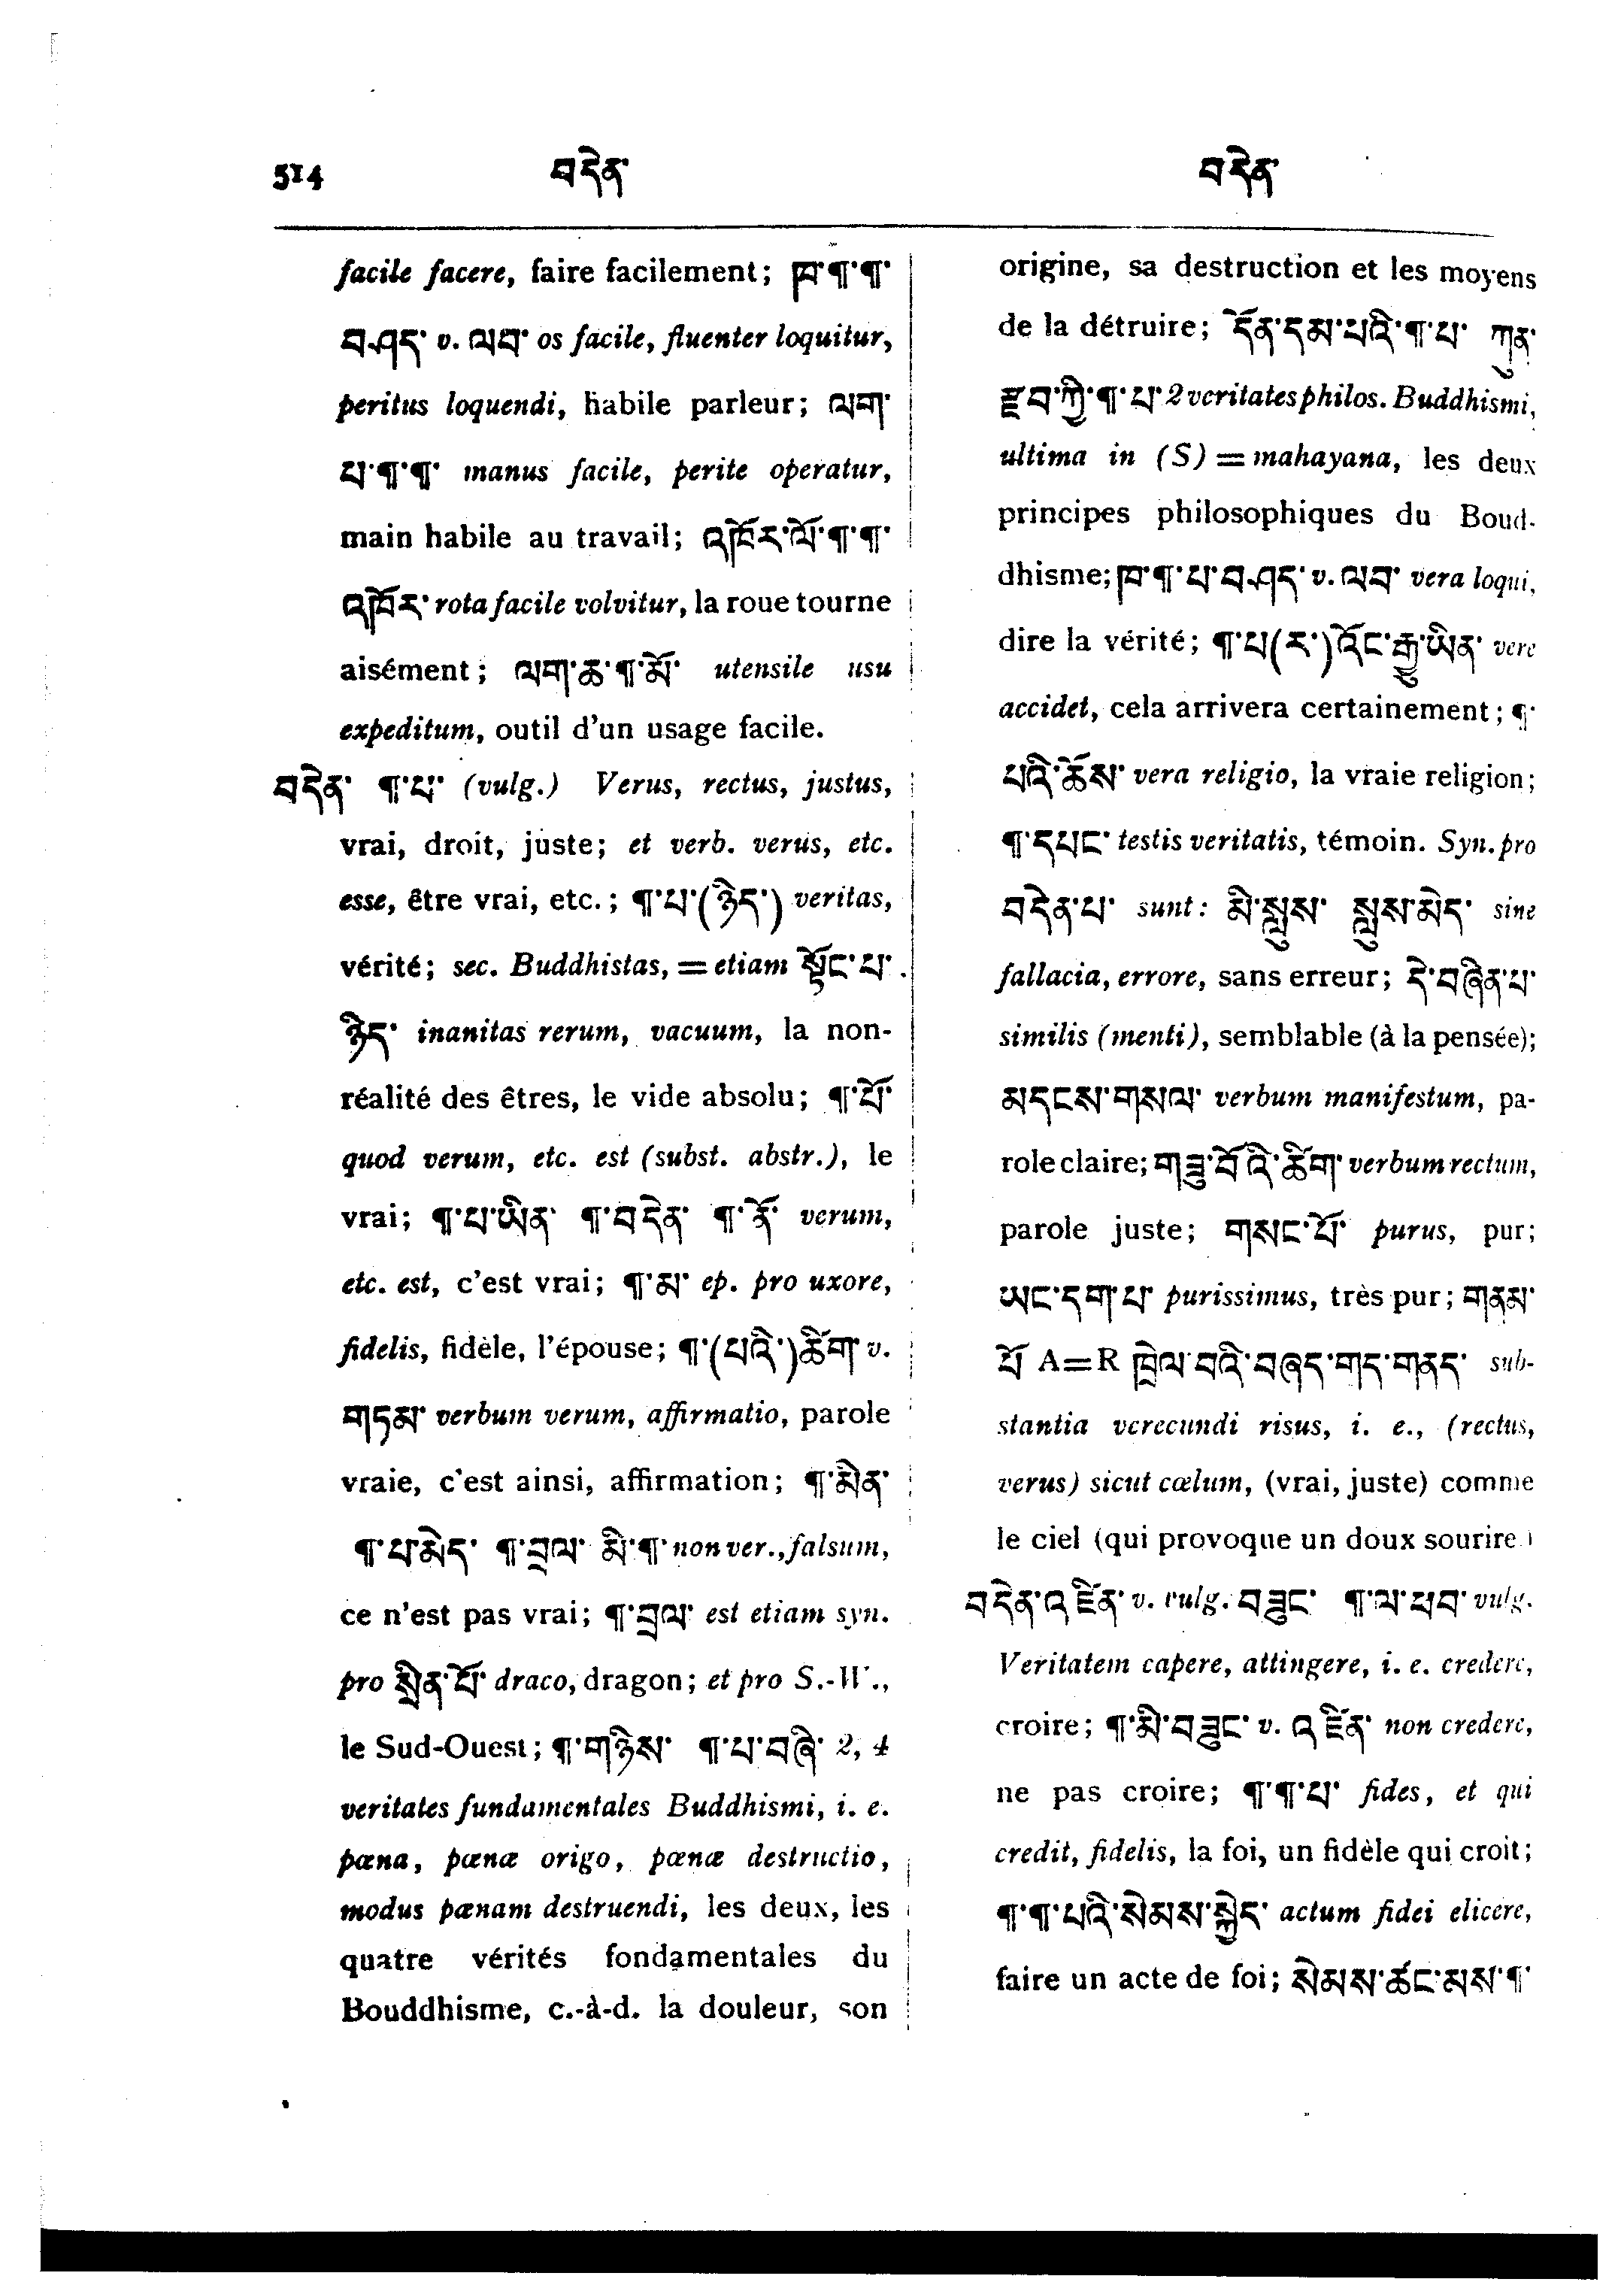 514 བདེན་ བདེན་
facile facere, faire facilement; ཁ་¶་¶་
བ་ཤད་ v. ལབ་ os facile, fluenter loquitur,
peritus loquendi, habile parleur; ལག་
པ་¶་¶་ manus facile, perite operatur,
main habile au travail; འཁོར་ལོ་¶་¶་
འཁོར་ rota facile volvitur, la roue tourne
aisément; ལག་ཆ་¶་མོ་ utensile usu
expeditum, outil d'un usage facile.
བདེན་ ¶་པ་ (vulg.) Verus, rectus, justus,
vrai, droit, juste; et verb. verus, etc.
esse, être vrai, etc.; ¶་པ་(ཉིད་) veritas,
vérité; sec. Buddhistas, = etiam སྟོང་པ་
ཉིད་ inanitas rerum, vacuum, la non-
réalité des êtres, le vide absolu; ¶་པོ་
quod verum, etc. est (subst. abstr.), le
vrai; ¶་པ་ཡིན་ ¶་བདེན་ ¶་ནོ་ verum,
etc. est, c'est vrai; ¶་མ་ ep. pro uxore,
fidelis, fidèle, l'épouse; ¶་(པའི་)ཚིག་ v.
གཏམ་ verbum verum, affirmatio, parole
vraie, c'est ainsi, affirmation; ¶་མིན་
¶་པ་མེད་ ¶་བྲལ་ མི་¶་ non ver., falsum,
ce n'est pas vrai; ¶་བྲལ་ est etiam syn.
pro སྲིན་པོ་ draco, dragon; et pro S.-W.,
le Sud-Ouest; ¶་གཉིས་ ¶་པ་བཞི་ 2, 4
veritates fundamentales Buddhismi, i. e.
pœna, pœnæ origo, pœnæ destructio,
modus pœnam destruendi, les deux, les
quatre vérités fondamentales du
Bouddhisme, c.-à-d. la douleur, son
origine, sa destruction et les moyens
de la détruire; དོན་དམ་པའི་¶་པ་ ཀུན་
རྫོབ་ཀྱི་¶་པ་ 2 veritates philos. Buddhismi,
ultima in (S) = mahayana, les deux
principes philosophiques du Boud-
dhisme; ཁ་¶་པ་བ་ཤད་ v. ལབ་ vera loqui,
dire la vérité; ¶་པ(ར་)འོང་རྒྱུ་ཡིན་ vere
accidet, cela arrivera certainement; ¶་
པའི་ཆོས་ vera religio, la vraie religion;
¶་དཔང་ testis veritatis, témoin. Syn. pro
བདེན་པ་ sunt: མི་སླུས་ སླུས་མེད་ sine
fallacia, errore, sans erreur; དེ་བཞིན་པ་
similis (menti), semblable (à la pensée);
མདངས་གསལ་ verbum manifestum, pa-
role claire; གཟུ་བོའི་ཚིག་ verbum rectum,
parole juste; གསང་པོ་ purus, pur;
ཡང་དག་པ་ purissimus, très pur; གནམ་
པོ་ A=R ཁྲེལ་བའི་བཞད་གད་གནད་ sub-
stantia verecundi risus, i. e., (rectus,
verus) sicut cœlum, (vrai, juste) comme
le ciel (qui provoque un doux sourire)
བདེན་འཛིན་ v. vulg. བཟུང་ ¶་ལ་ཕབ་ vulg.
Veritatem capere, attingere, i. e. credere,
croire; ¶་མི་བཟུང་ v. འཛིན་ non credere,
ne pas croire; ¶་¶་པ་ fides, et qui
credit, fidelis, la foi, un fidèle qui croit;
¶་¶་པའི་སེམས་སྐྱེད་ actum fidei elicere,
faire un acte de foi; སེམས་ཚང་མས་¶་